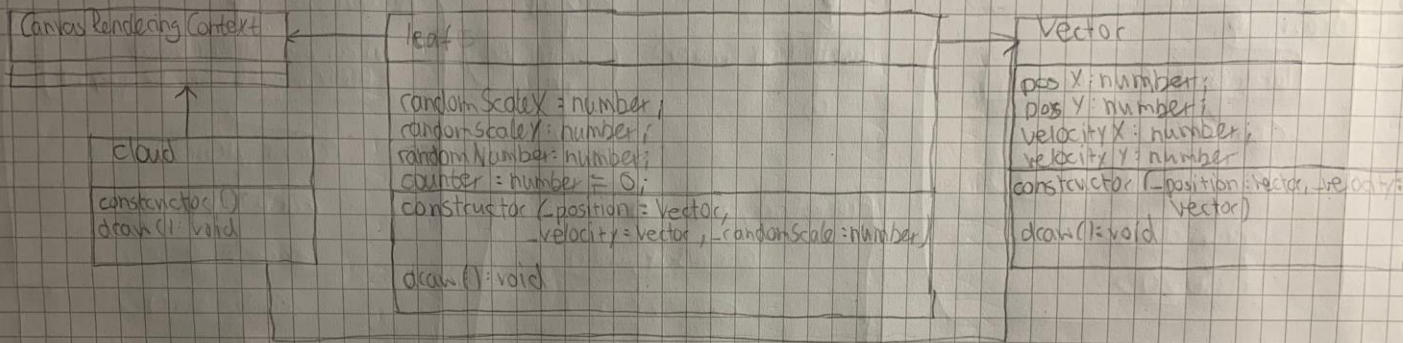 CanvasRenderingContext
cloud
constructor()
draw(): void
leaf
randomScaleX : number;
randomscaleY: number;
randomNumber: number;
counter : number = 0;
constructor (_position: Vector,
_velocity: Vector, _randomScale: number)
draw(): void
Vector
pos X: number;
pos Y: number;
velocityX: number;
velocity Y: number
constructor (_position: vector, _velocity:
vector)
draw(): void